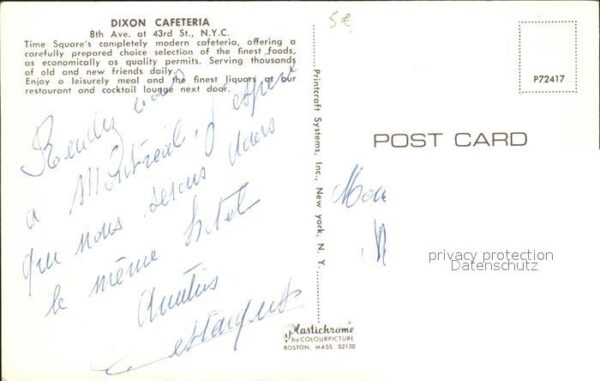 DIXON CAFETERIA
8th Ave. at 43rd St., N.Y.C.
Time Square's completely modern cafeteria, offering a
carefully prepared choice selection of the finest foods,
as economically as quality permits. Serving thousands
of old and new friends daily.
Enjoy a leisurely meal and the finest liquors at our
restaurant and cocktail lounge next door.
Rendez vous
a Montréal, j'espère
que nous serons dans
le même hôtel
Amitiés
5€
Printcraft Systems, Inc., New york, N. Y.
Plastichrome
by COLOURPICTURE
BOSTON, MASS. 02130
P72417
POST CARD
privacy protection
Datenschutz